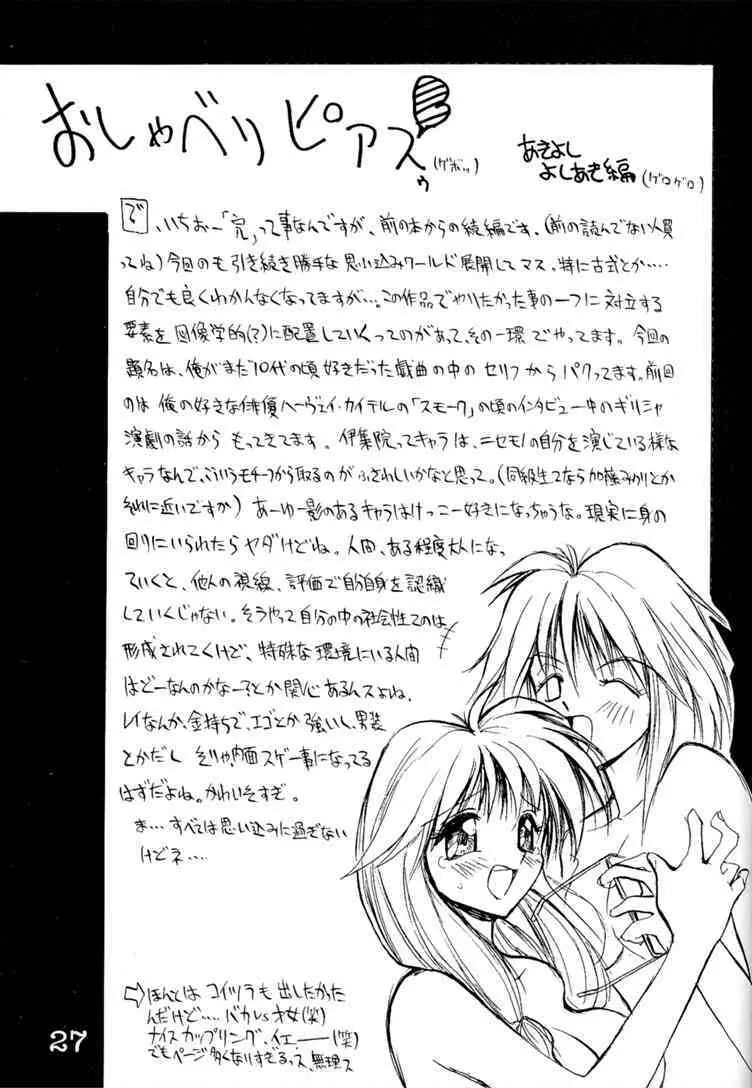 おしゃべりピアスゥ(ゲボッ)
あきよし
よしあき編(ゲロゲロ)
で、いちおー「完」って事なんですが、前の本からの続編です、(前の読んでない人買
ってね)今回のも引き続き勝手な思い込みワールド展開してマス、特に古式とか‥‥
自分でも良くわかんなくなってますが…。この作品でやりたかった事の一つに対立する
要素を図像学的(?)に配置していくってのがあって、その一環でやってます。今回の
題名は、俺がまだ10代の頃好きだった戯曲の中のセリフからパクってます。前回
のは俺の好きな俳優ハーヴェイ・カイテルの「スモーク」の頃のインタビュー中のギリシャ
演劇の話からもってきてます。伊集院ってキャラは、ニセモノの自分を演じている様な
キャラなんで、こういうモチーフから取るのがふさわしいかなと思って。(同級生2なら加藤みのりとか
それに近いですか)あーゆー影のあるキャラはけっこー好きになっちゃうな。現実に身の
回りにいられたらヤダけどね。人間、ある程度大人になっ
ていくと、他人の視線、評価で自分自身を認識
していくじゃない。そうやって自分の中の社会性てのは
形成されてくけど、特殊な環境にいる人間
はどーなんのかなー?とか関心あるんスよね。
レイなんか、金持ちで、エゴとか強いし、男装
とかだし そりゃ内面スゲー事になってる
はずだよね。かわいそすぎ。
ま…すべては思い込みに過ぎない
けどネ‥‥
⇨ほんとは コイツラも出したかった
んだけど‥‥バカvs才女(笑)
ナイスカップリング、イエー――(笑)
でもページ多くなりすぎるっス、無理ス
27